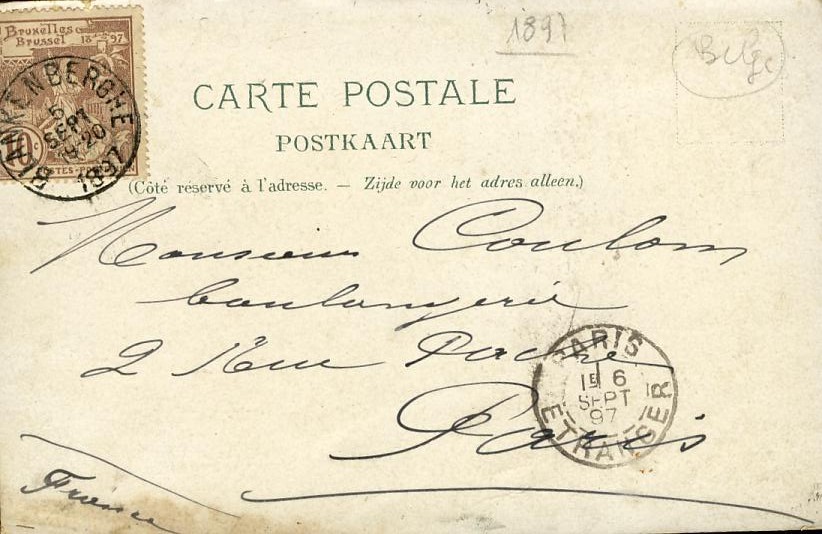 1897
Belge
Bruxelles
Brussel 18 97
10c
BLANKENBERGHE
5
SEPT
20
1897
CARTE POSTALE
POSTKAART
(Côté réservé à l'adresse. — Zijde voor het adres alleen.)
Monsieur Coulom
boulangerie
2 Rue Pache
Paris
France
PARIS
1E 6
SEPT
97
ETRANGER